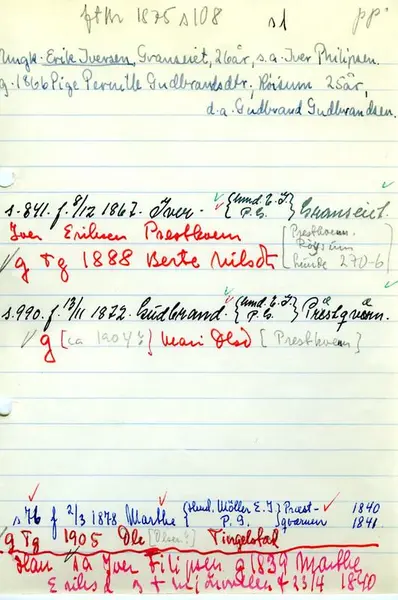 ftHr 1875 s 108 s1 pp
Ungk. Erik Iversen, Granseiet, 26 år, s.a. Iver Philipsen.
g. 1866 Pige Pernille Gudbrandsdtr. Röisum 25 år,
d.a. Gudbrand Gudbrandsen.
s. 841. f. 8/12 1867. Iver. {Hmd. E. I. P. G.} Granseiet.
Iver Eriksen Prestkvern [Prestkvern. Röysum 270-6]
g Tg 1888 Berte Nilsdtr
s. 990. f. 13/11 1872. Gudbrand. {Hmd. E. I. P. G.} Præstqværn.
g [ca 1904?] Mari Olsd [Prestkvern]
s 76 f 2/3 1878 Marthe {Husd. Möller E. I. P. G.} Præst-qværnen 1840 1841
g Tg 1905 Ole [Olsen?] Tingelstad
Han sa Iver Filipsen g 1839 Marthe
Eriksd + 23/4 1840